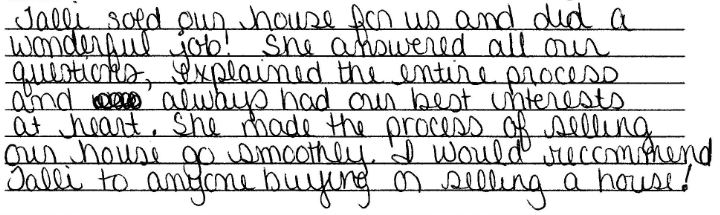 Talli sold our house for us and did a
wonderful job! She answered all our
questions, explained the entire process
and always had our best interests
at heart. She made the process of selling
our house go smoothly. I would recommend
Talli to anyone buying or selling a house!